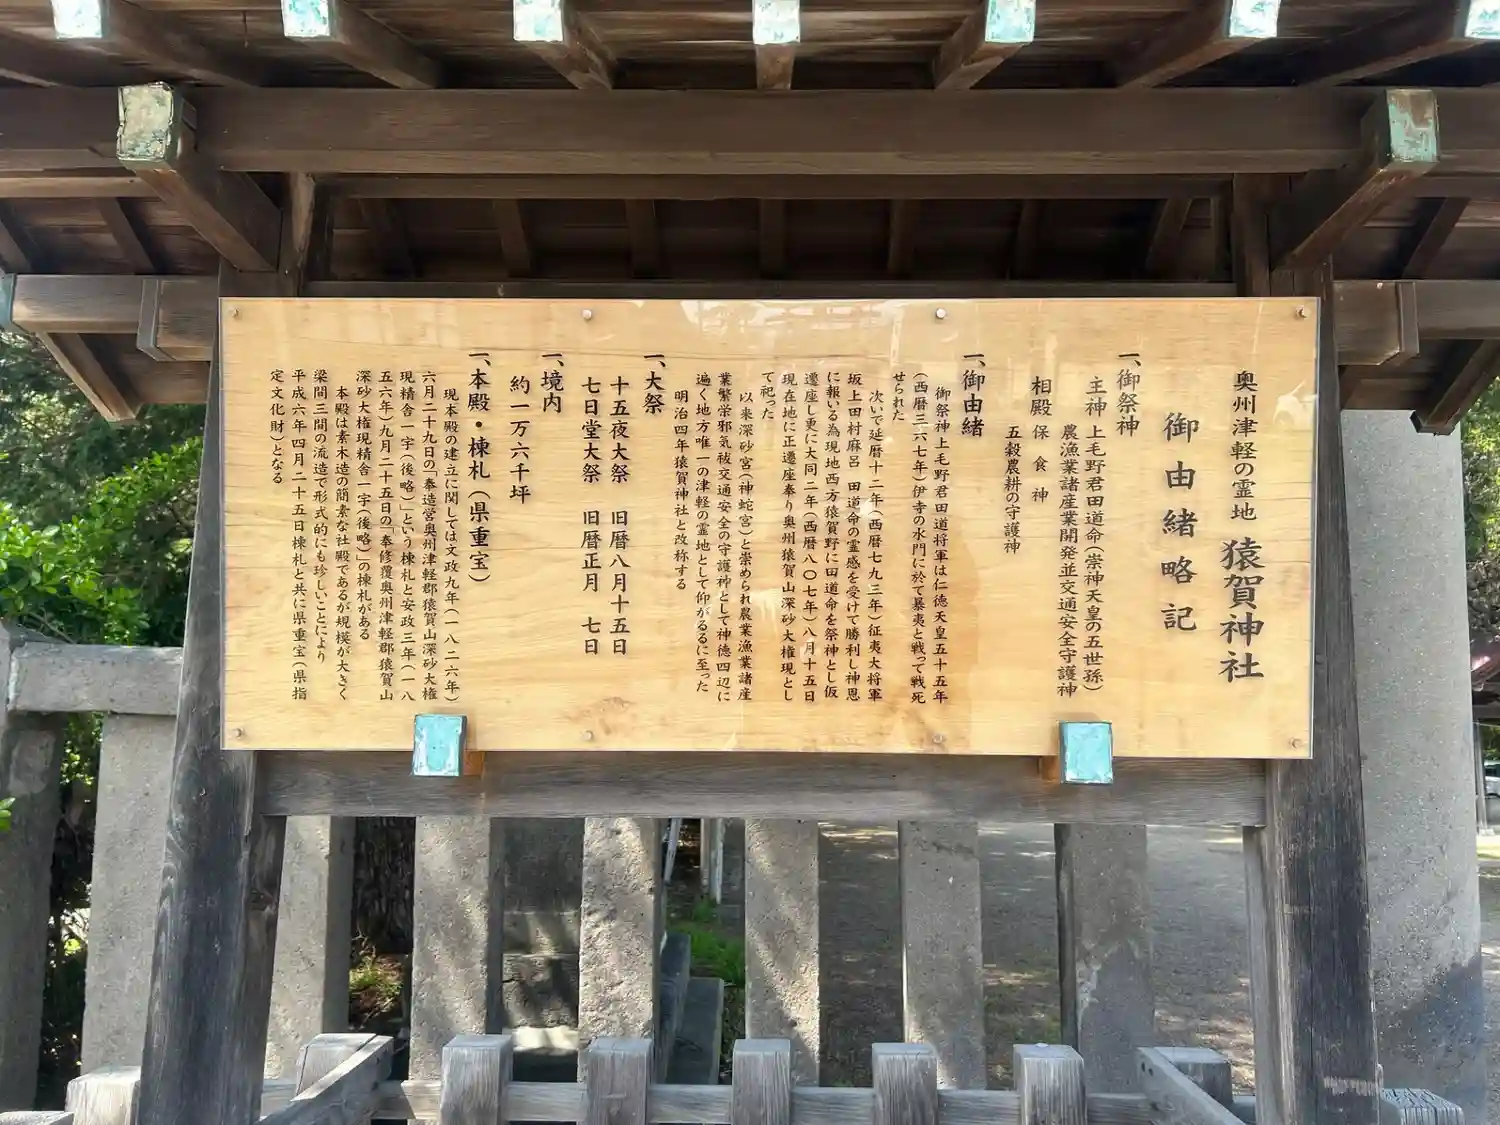 奥州津軽の霊地 猿賀神社
御由緒略記
一、御祭神
主神 上毛野君田道命(崇神天皇の五世孫)
農漁業諸産業開発並交通安全守護神
相殿 保食神
五穀農耕の守護神
一、御由緒
御祭神上毛野君田道将軍は仁徳天皇五十五年
(西暦三六七年)伊寺の水門に於て暴夷と戦って戦死
せられた
次いで延暦十二年(西暦七九三年)征夷大将軍
坂上田村麻呂 田道命の霊感を受けて勝利し神恩
に報いる為現地西方猿賀野に田道命を祭神とし仮
遷座し更に大同二年(西暦八〇七年)八月十五日
現在地に正遷座奉り奥州猿賀山深砂大権現とし
て祀った
以来深砂宮(神蛇宮)と崇められ農業漁業諸産
業繁栄邪気祓交通安全の守護神として神徳四辺に
遍く地方唯一の津軽の霊地として仰がるるに至った
明治四年猿賀神社と改称する
一、大祭
十五夜大祭 旧暦八月十五日
七日堂大祭 旧暦正月 七日
一、境内
約一万六千坪
一、本殿・棟札(県重宝)
現本殿の建立に関しては文政九年(一八二六年)
六月二十九日の「奉造営奥州津軽郡猿賀山深砂大権
現精舎一字(後略)」という棟札と安政三年(一八
五六年)九月二十五日の「奉修覆奥州津軽郡猿賀山
深砂大権現精舎一字(後略)」の棟札がある
本殿は素木造の簡素な社殿であるが規模が大きく
梁間三間の流造で形式的にも珍しいことにより
平成六年四月二十五日棟札と共に県重宝(県指
定文化財)となる